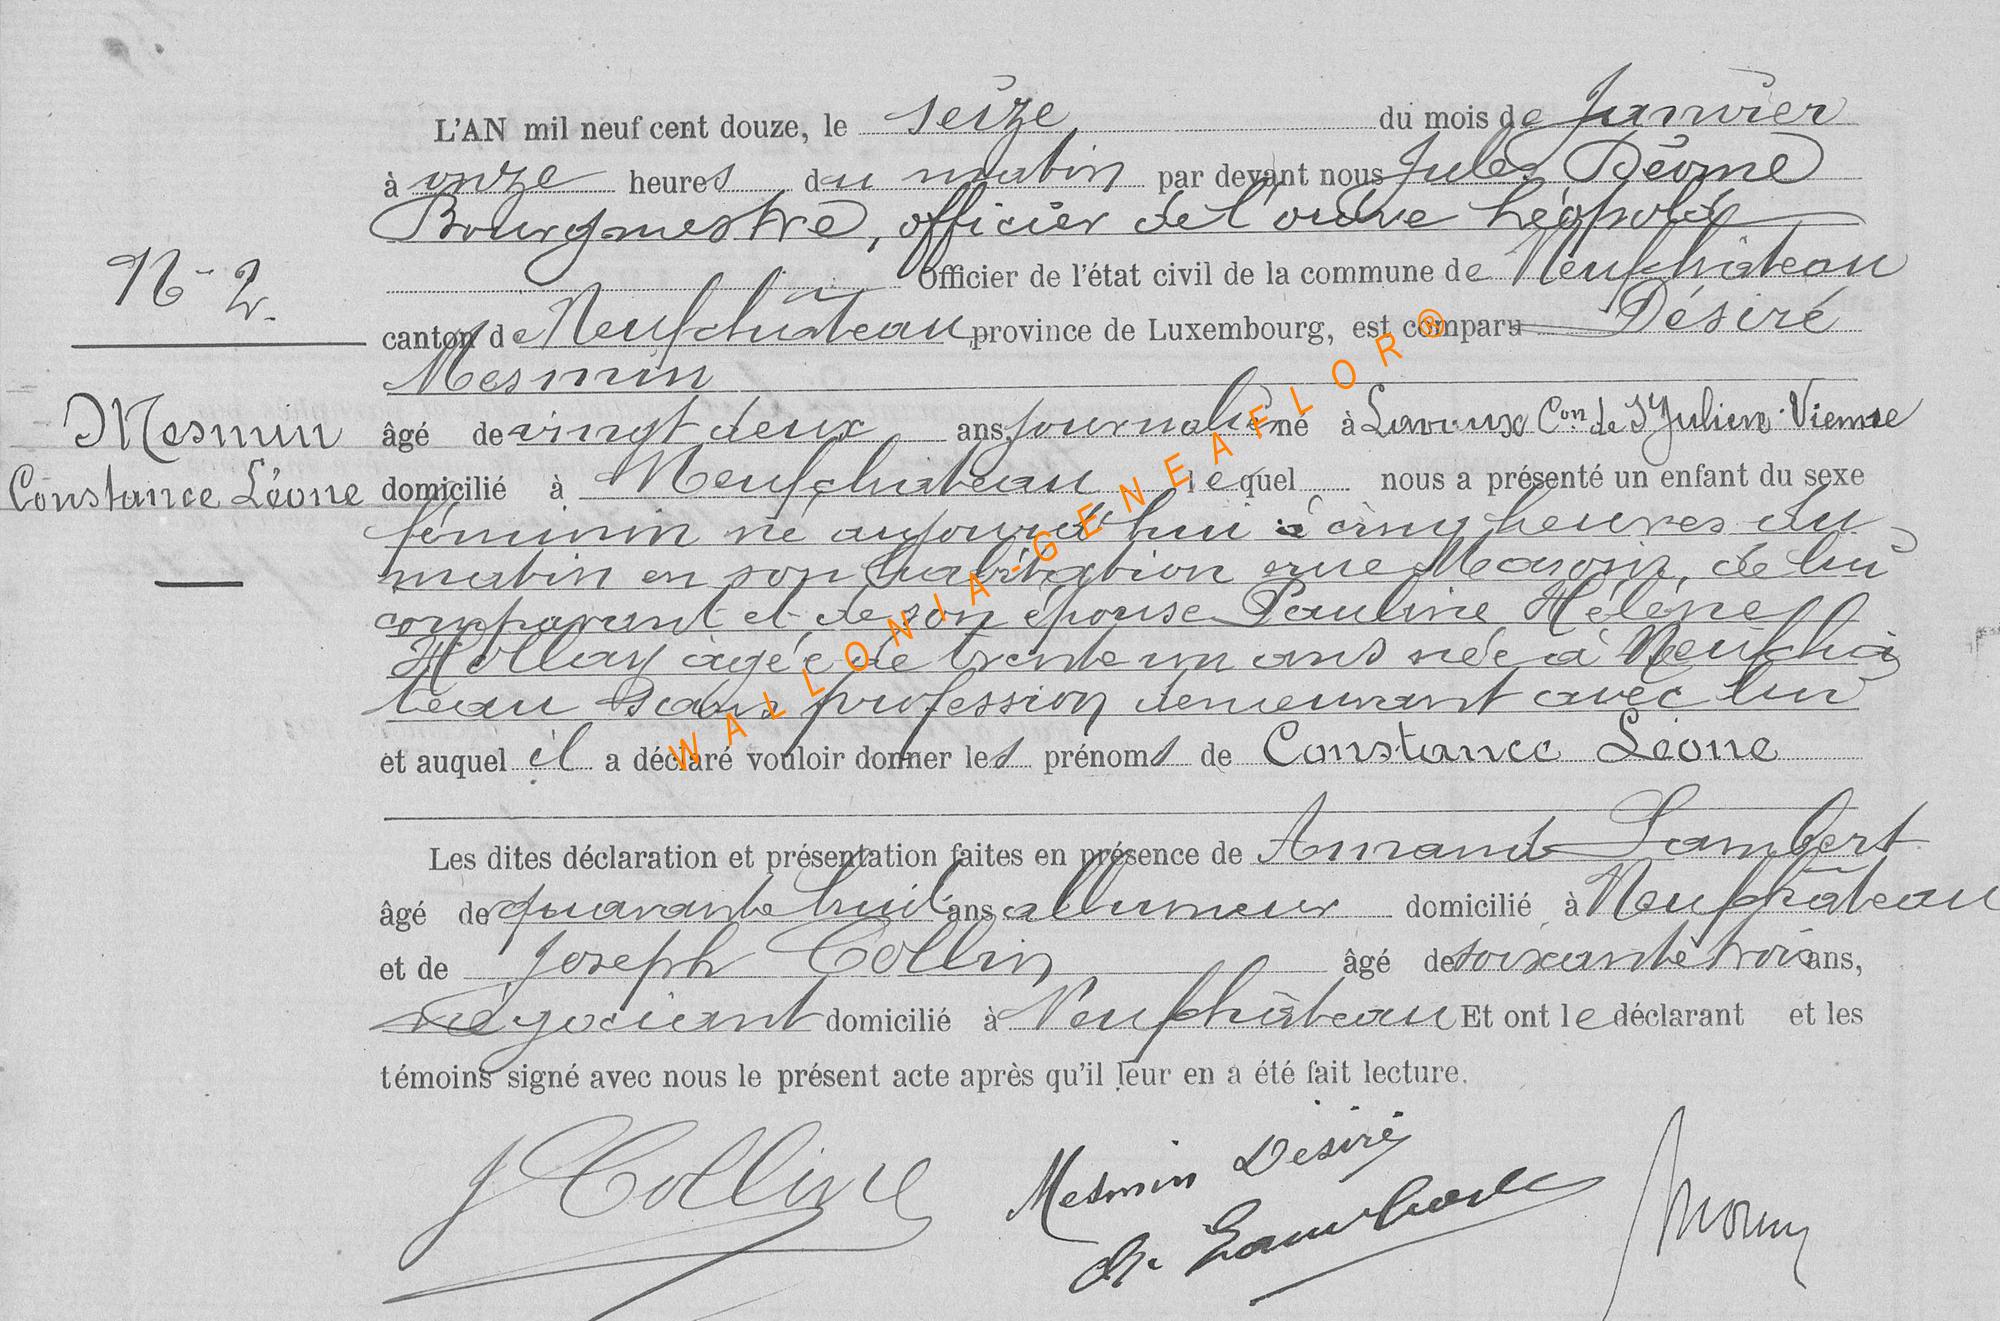 L'AN mil neuf cent douze, le seize du mois de Janvier
à onze heures du matin par devant nous Jules
Bourgmestre, officier de l'ordre Léopold
Officier de l'état civil de la commune de Neufchâteau
N - 2.
canton de Neufchâteau province de Luxembourg, est comparu Désiré
Mesmin
Mesmin
âgé de vingt deux ans journalier né à Lavoux Con de St Julien Vienne
Constance Léone
domicilié à Neufchâteau lequel nous a présenté un enfant du sexe
féminin né aujourd'hui à cinq heures du
matin en son habitation rue de lui
comparant et de son épouse Pauline Hélène
Hollay âgée de trente un ans née à Neufchâ
teau sans profession demeurant avec lui
et auquel il a déclaré vouloir donner les prénoms de Constance Léone
Les dites déclaration et présentation faites en présence de Amand Lambert
âgé de quarante huit ans allumeur domicilié à Neufchâteau
et de Joseph Collin âgé de soixante trois ans,
négociant domicilié à Neufchâteau Et ont le déclarant et les
témoins signé avec nous le présent acte après qu'il leur en a été fait lecture.
J Collin
Mesmin Désiré
WALLONIA-GENEAFLOR®